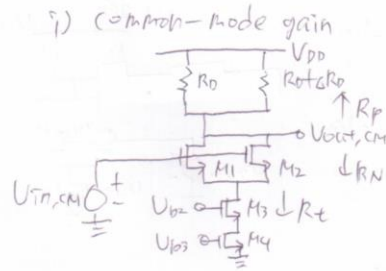 i) common-mode gain
VDD
RD
RD+ΔRD
↑ Rp
Vout,CM
↓ RN
M1
M2
Vin,CM
+
-
Vb2
M3
↓ Rt
Vb3
M4